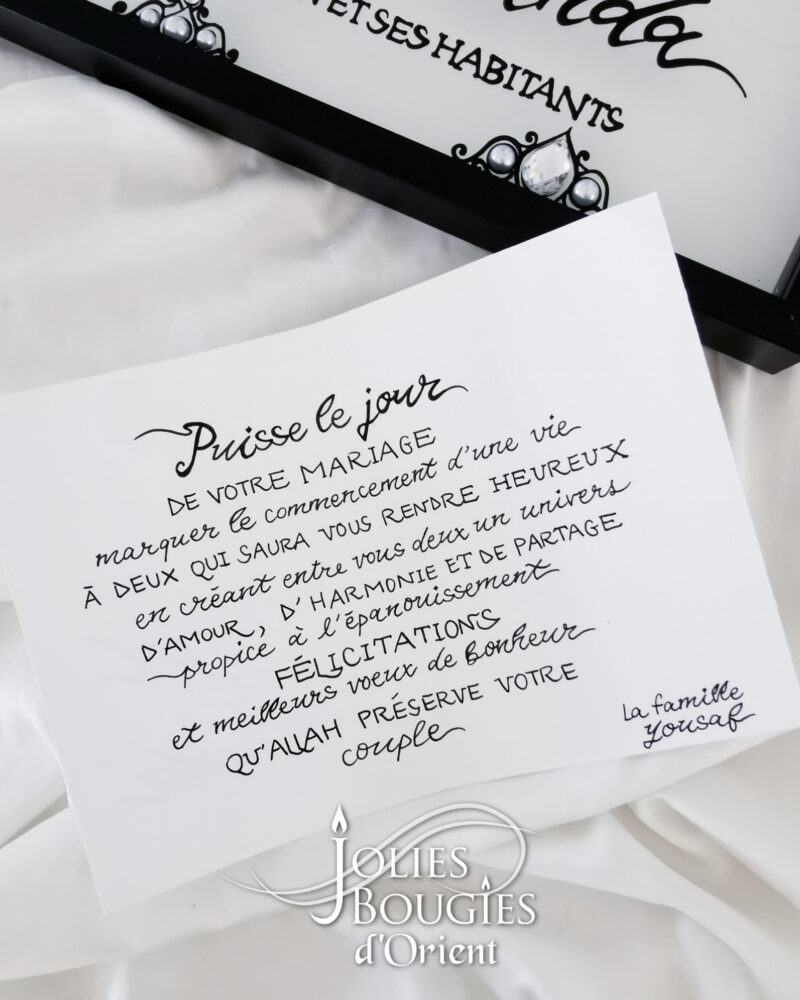 ET SES HABITANTS
Puisse le jour
DE VOTRE MARIAGE
marquer le commencement d'une vie
À DEUX QUI SAURA VOUS RENDRE HEUREUX
en créant entre vous deux un univers
D'AMOUR, D'HARMONIE ET DE PARTAGE
propice à l'épanouissement
FÉLICITATIONS
et meilleurs voeux de bonheur
QU'ALLAH PRÉSERVE VOTRE
couple
La famille
Yousaf
JOLIES
BOUGIES
d'Orient